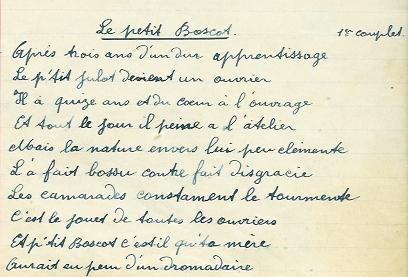 Le petit Boscot. 1er couplet.
Après trois ans d'un dur apprentissage
Le p'tit julot devient un ouvrier
Il à quize ans et du coeur à l'ouvrage
Et tout le jour il peine a l'atelier
Mais la nature envers lui peu clémente
L'à fait bossu contre fait disgracié
Les camarades constament le tourmente
C'est le jouet de toutes les ouvriers
Et p'tit Boscot c'éstil qu'ta mère
Aurait eu peur d'un dromadaire